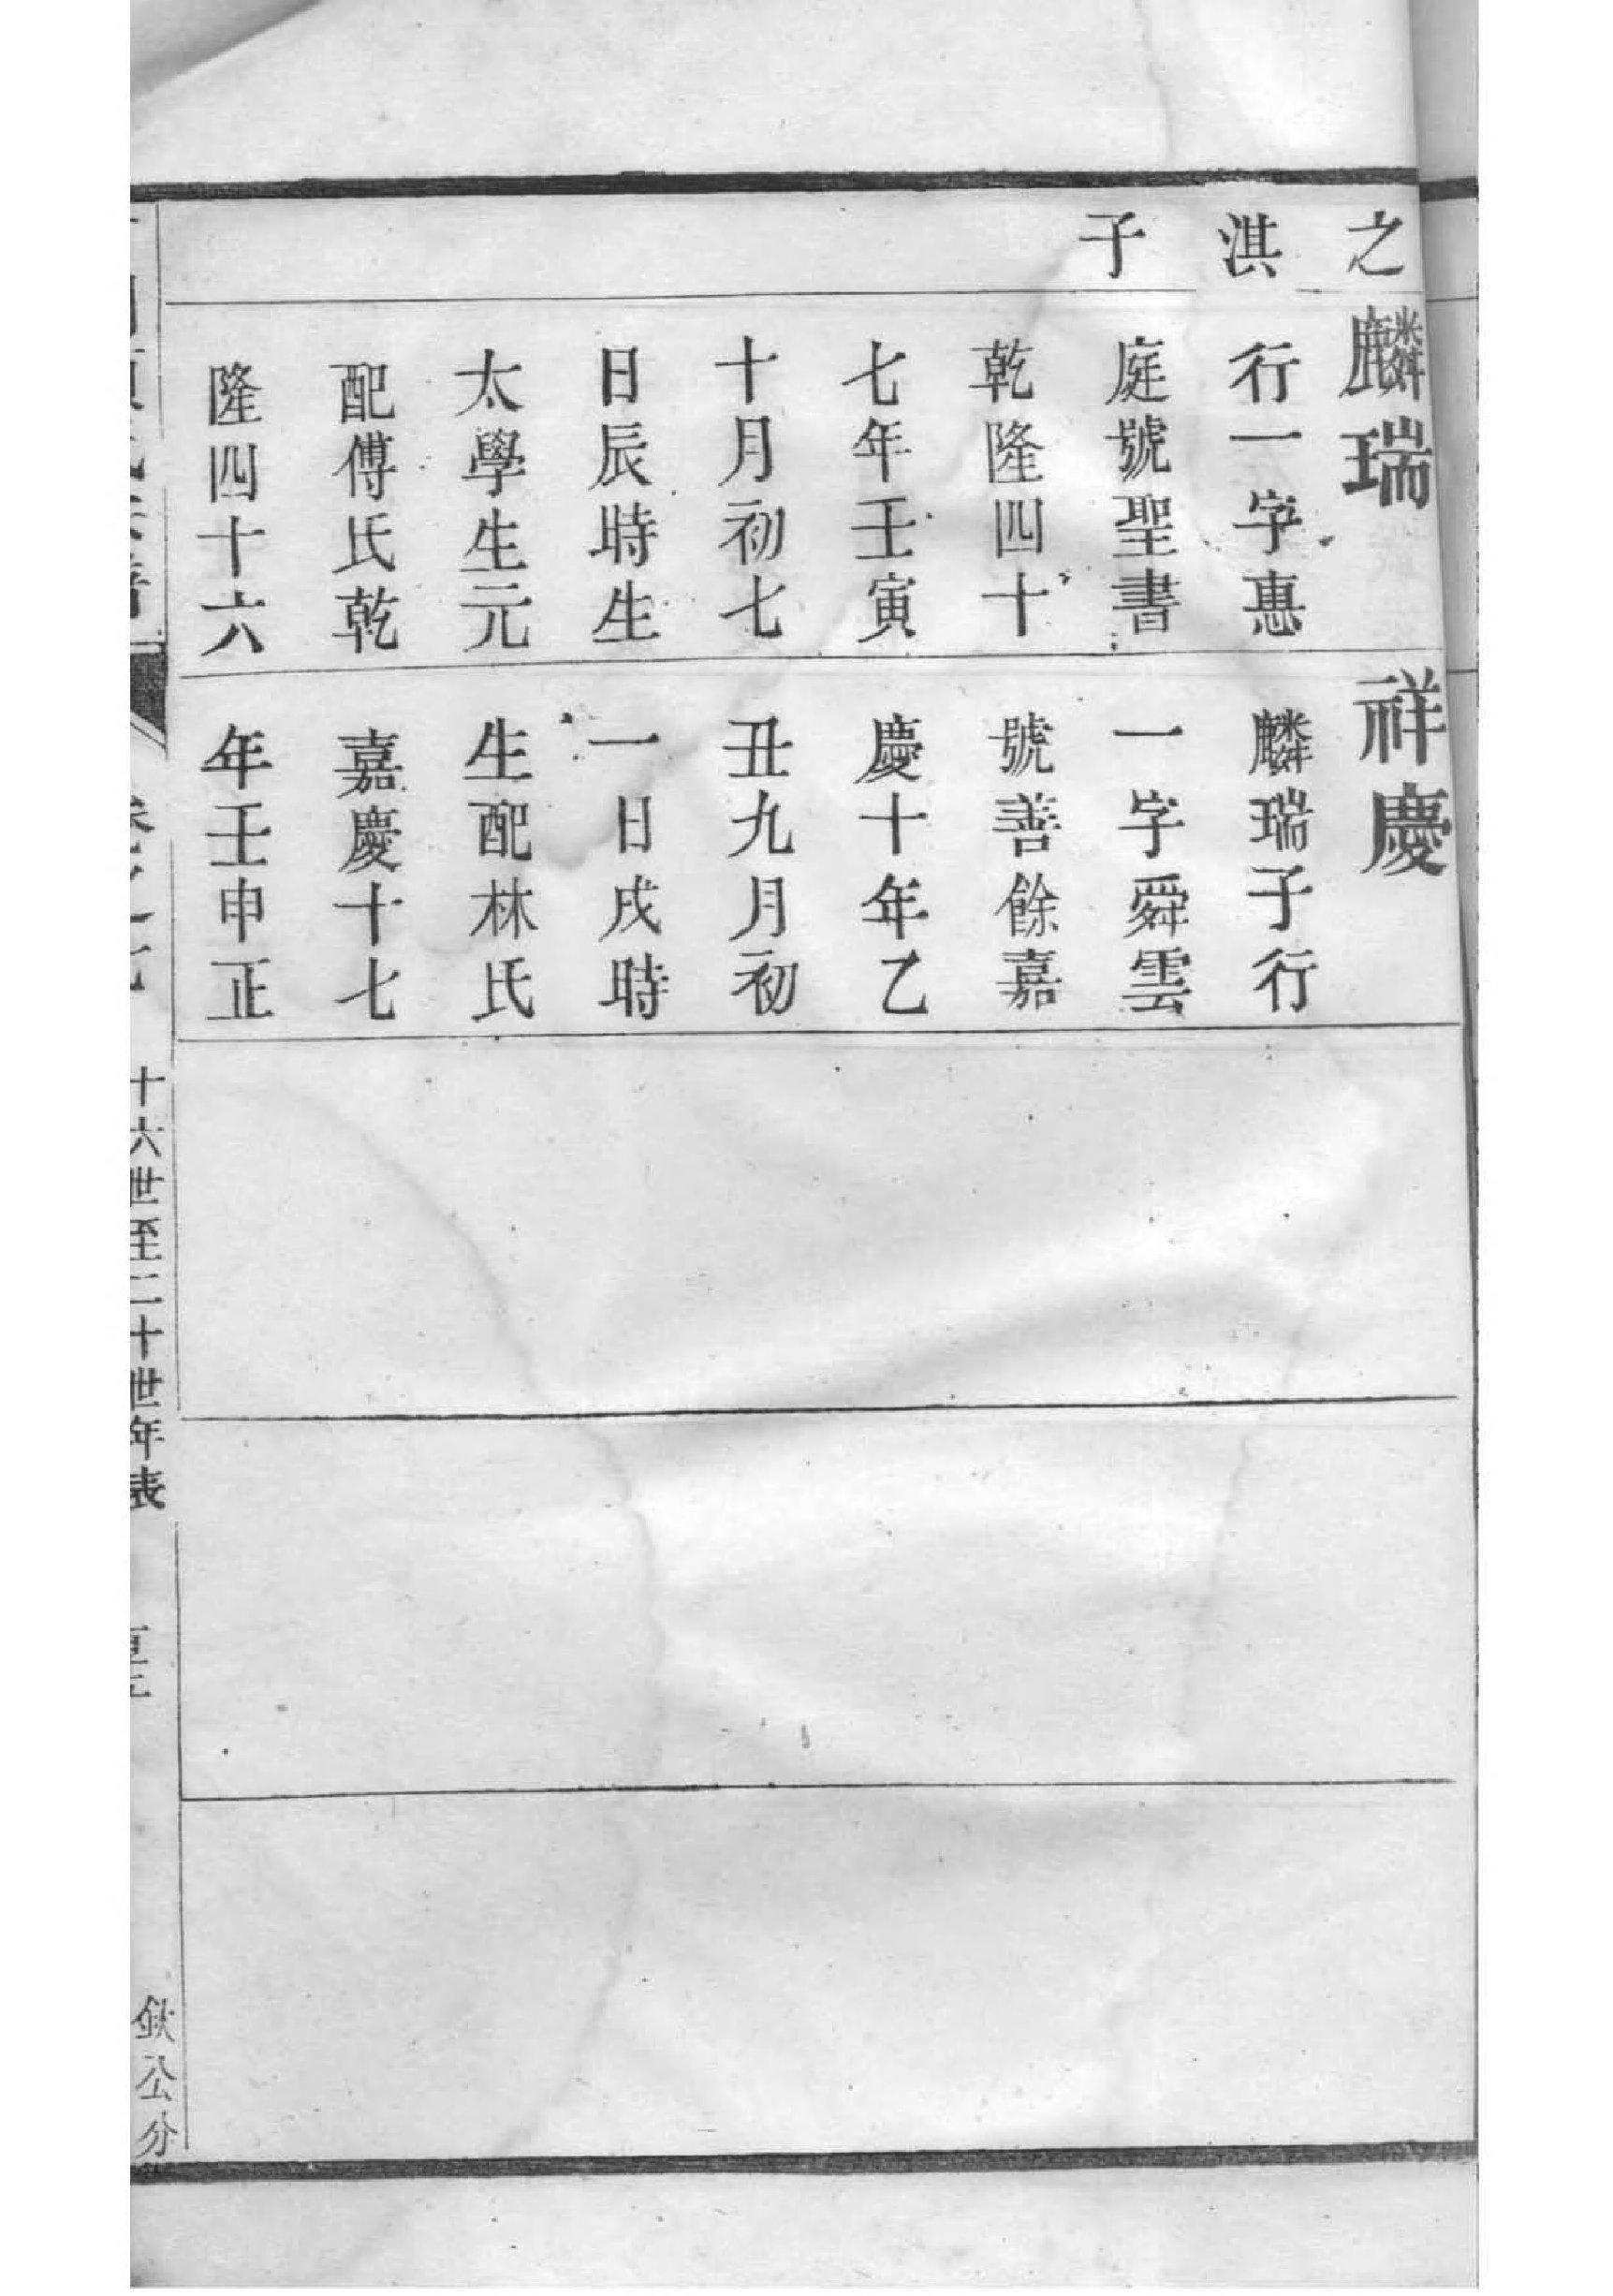 之
淇
子
麟瑞
行一字惠
庭號聖書
乾隆四十
七年壬寅
十月初七
日辰時生
太學生元
配傅氏乾
隆四十六
祥慶
麟瑞子行
一字舜雲
號善餘嘉
慶十年乙
丑九月初
一日戌時
生配林氏
嘉慶十七
年壬申正
十六世至二十世年表
欽公分